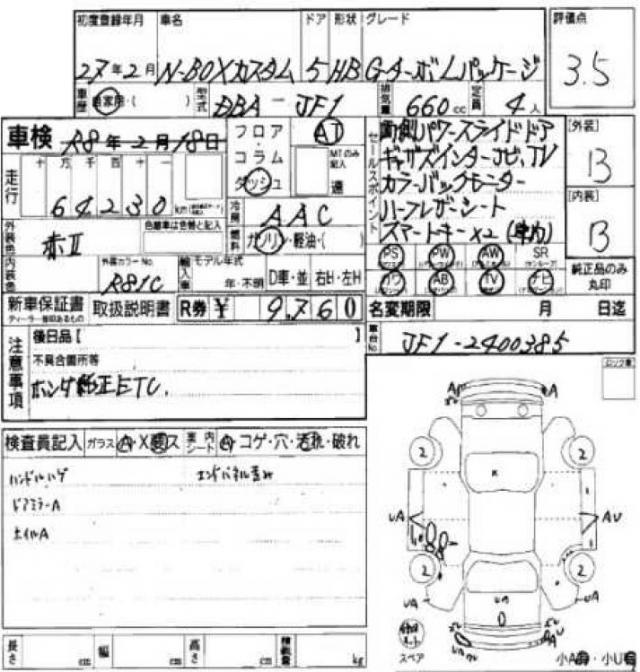 初度登録年月 車名 ドア 形状 グレード 評価点
27年2月 N-BOXカスタム 5 HB G・ターボLパッケージ 3.5
車歴 自家用・( ) 型式 DBA－JF1 排気量 660cc 定員 4人
車検 R8年2月18日 フロア・コラム ダッシュ AT MTのみ記入 速
セールスポイント
両側パワースライドドア
ギャザズインターナビ、TV
カラーバックモニター
ハーフレザーシート
スマートキーx2 (車内)
[外装] B
[内装] B
走行 十 万 千 百 十 一
64230 km
冷房 AAC
燃料 ガソリン・軽油・( )
外装色 赤II 色替車は色替と記入
PS PW AW SR
カワ AB TV ナビ
純正品のみ丸印
内装色 外装カラーNo. R81C 輸入車 モデル年式 年・不明 D車・並 右H・左H
新車保証書 取扱説明書 R券 ¥ 9,760
ディーラー捺印あるもの
名変期限 月 日迄
車台No. JF1-2400385
注意事項
後日品 [ ]
不具合箇所等
ホンダ純正ETC.
検査員記入 ガラス A・X・ス 車内シート A コゲ・穴・汚れ・破れ
ハンドルハゲ エンドパネル歪み
ドアミラーA
ホイルA
A A
2 2
x
UA AU
2 2
UA UA UA
スペア
小A 小U
長さ cm 幅 cm 高さ cm 積載量 kg